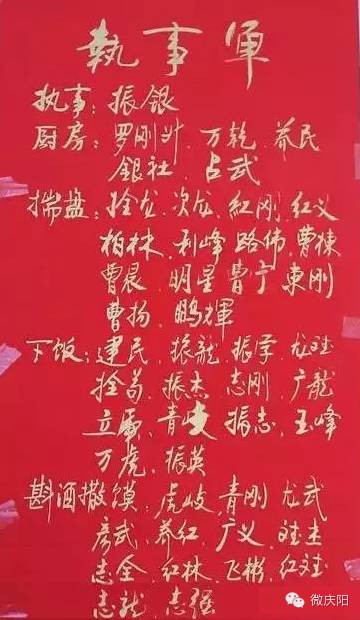 執事單
执事：振银
厨房：罗刚升、万乾、养民
銀社、占武
揣盘：拴龙、次龙、紅刚、红义
柏林、利峰、路伟、曹棟
曹晨、明星、曹宁、東刚
曹扬、鹏輝
下饭：建民、振龍、振孚、龙
拴苟、振杰、志刚、广龍
立、青岐、振志、玉峰
万虎、振英
斟酒撒馍、虎岐、青刚、龙武
彦武、养红、广义、杰
志全、红林、飞彬、红
志龍、志强
微庆阳